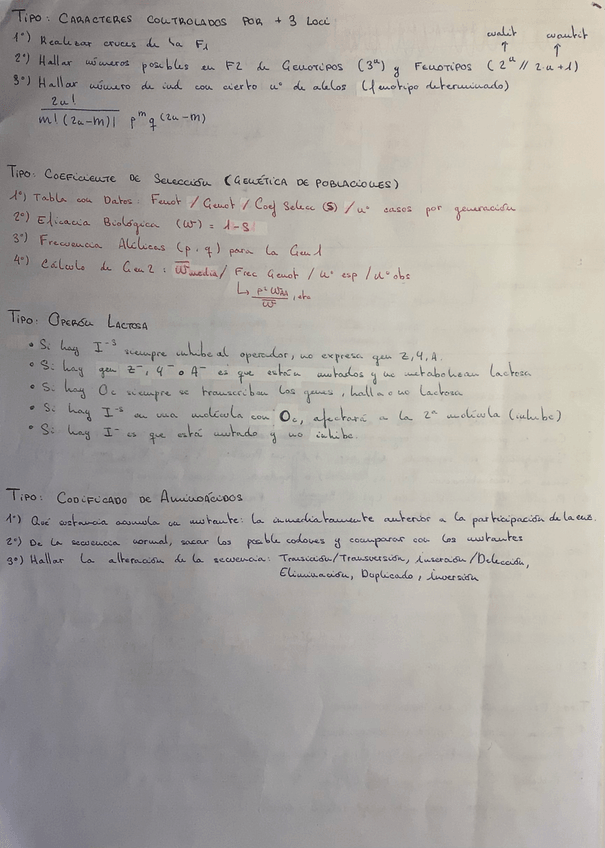 TIPO: CARACTERES CONTROLADOS POR + 3 LOCI:
1º) Realizar cruces de la F1
cualit cuantit
↑ ↑
2º) Hallar números posibles en F2 de GENOTIPOS (3ⁿ) y FENOTIPOS (2ⁿ // 2·n+1)
3º) Hallar número de ind con cierto nº de alelos (fenotipo determinado)
2n!
m! (2n-m)! p^m q^(2n-m)
TIPO: COEFICIENTE DE SELECCIÓN (GENÉTICA DE POBLACIONES)
1º) Tabla con Datos: Fenot / Genot / Coef Selecc (S) / nº casos por generación
2º) Eficacia Biológica (W) = 1-S
3º) Frecuencia Alélicas (p, q) para la Gen 1
4º) Cálculo de Gen 2: W̅ media / Frec Genot / nº esp / nº obs
↳ p² W_AA, etc
W̅
TIPO: OPERÓN LACTOSA
• Si hay I⁻ˢ siempre inhibe al operador, no expresa gen Z, Y, A.
• Si hay gen Z⁻, Y⁻ o A⁻ es que están mutados y no metabolizan lactosa
• Si hay Oc siempre se transcriban los genes, halla o no lactosa
• Si hay I⁻ˢ en una molécula con Oc, afectará a la 2ª molécula (inhibe)
• Si hay I⁻ es que está mutado y no inhibe.
TIPO: CODIFICADO DE AMINOÁCIDOS
1º) Qué sustancia acumula un mutante: la inmediatamente anterior a la participación de la enz.
2º) De la secuencia normal, sacar los posible codones y comparar con los mutantes
3º) Hallar la alteración de la secuencia: Transición/Transversión, inserción/Delección,
Eliminación, Duplicado, inversión